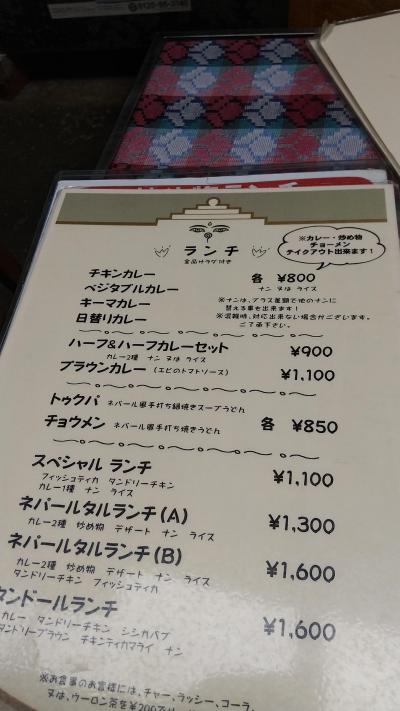 ランチ
全品サラダ付き
※カレー・炒め物
チョーメン
テイクアウト出来ます!
チキンカレー
ベジタブルカレー
キーマカレー
日替りカレー
各 ¥800
ナン 又は ライス
※ナンは、プラス差額で他のナンに
替える事も出来ます!
※混雑時、対応出来ない場合がございます。
ご了承下さい。
ハーフ&ハーフカレーセット ¥900
カレー2種 ナン 又は ライス
ブラウンカレー (エビのトマトソース) ¥1,100
トゥクパ ネパール風手打ち鍋焼きスープうどん
チョウメン ネパール風手打ち焼きうどん
各 ¥850
スペシャル ランチ ¥1,100
フィッシュティカ タンドリーチキン
カレー1種 ナン ライス
ネパールタルランチ(A) ¥1,300
カレー2種 炒め物 デザート ナン ライス
ネパールタルランチ(B) ¥1,600
カレー2種 炒め物 デザート ナン ライス
タンドリーチキン フィッシュティカ
タンドールランチ ¥1,600
カレー タンドリーチキン シシカバブ
タンドリープラウン チキンティカマライ ナン
※お食事のお客様には、チャー、ラッシー、コーラ、
又は、ウーロン茶を¥200で